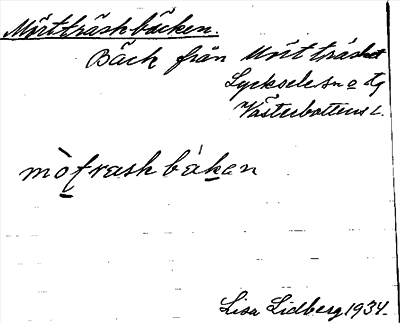 Mörtträskbäcken.
Bäck från Mörtträsket
Lycksele sn o tg
Västerbottens L.
mòtraskbákan
Lisa Lidberg 1934.